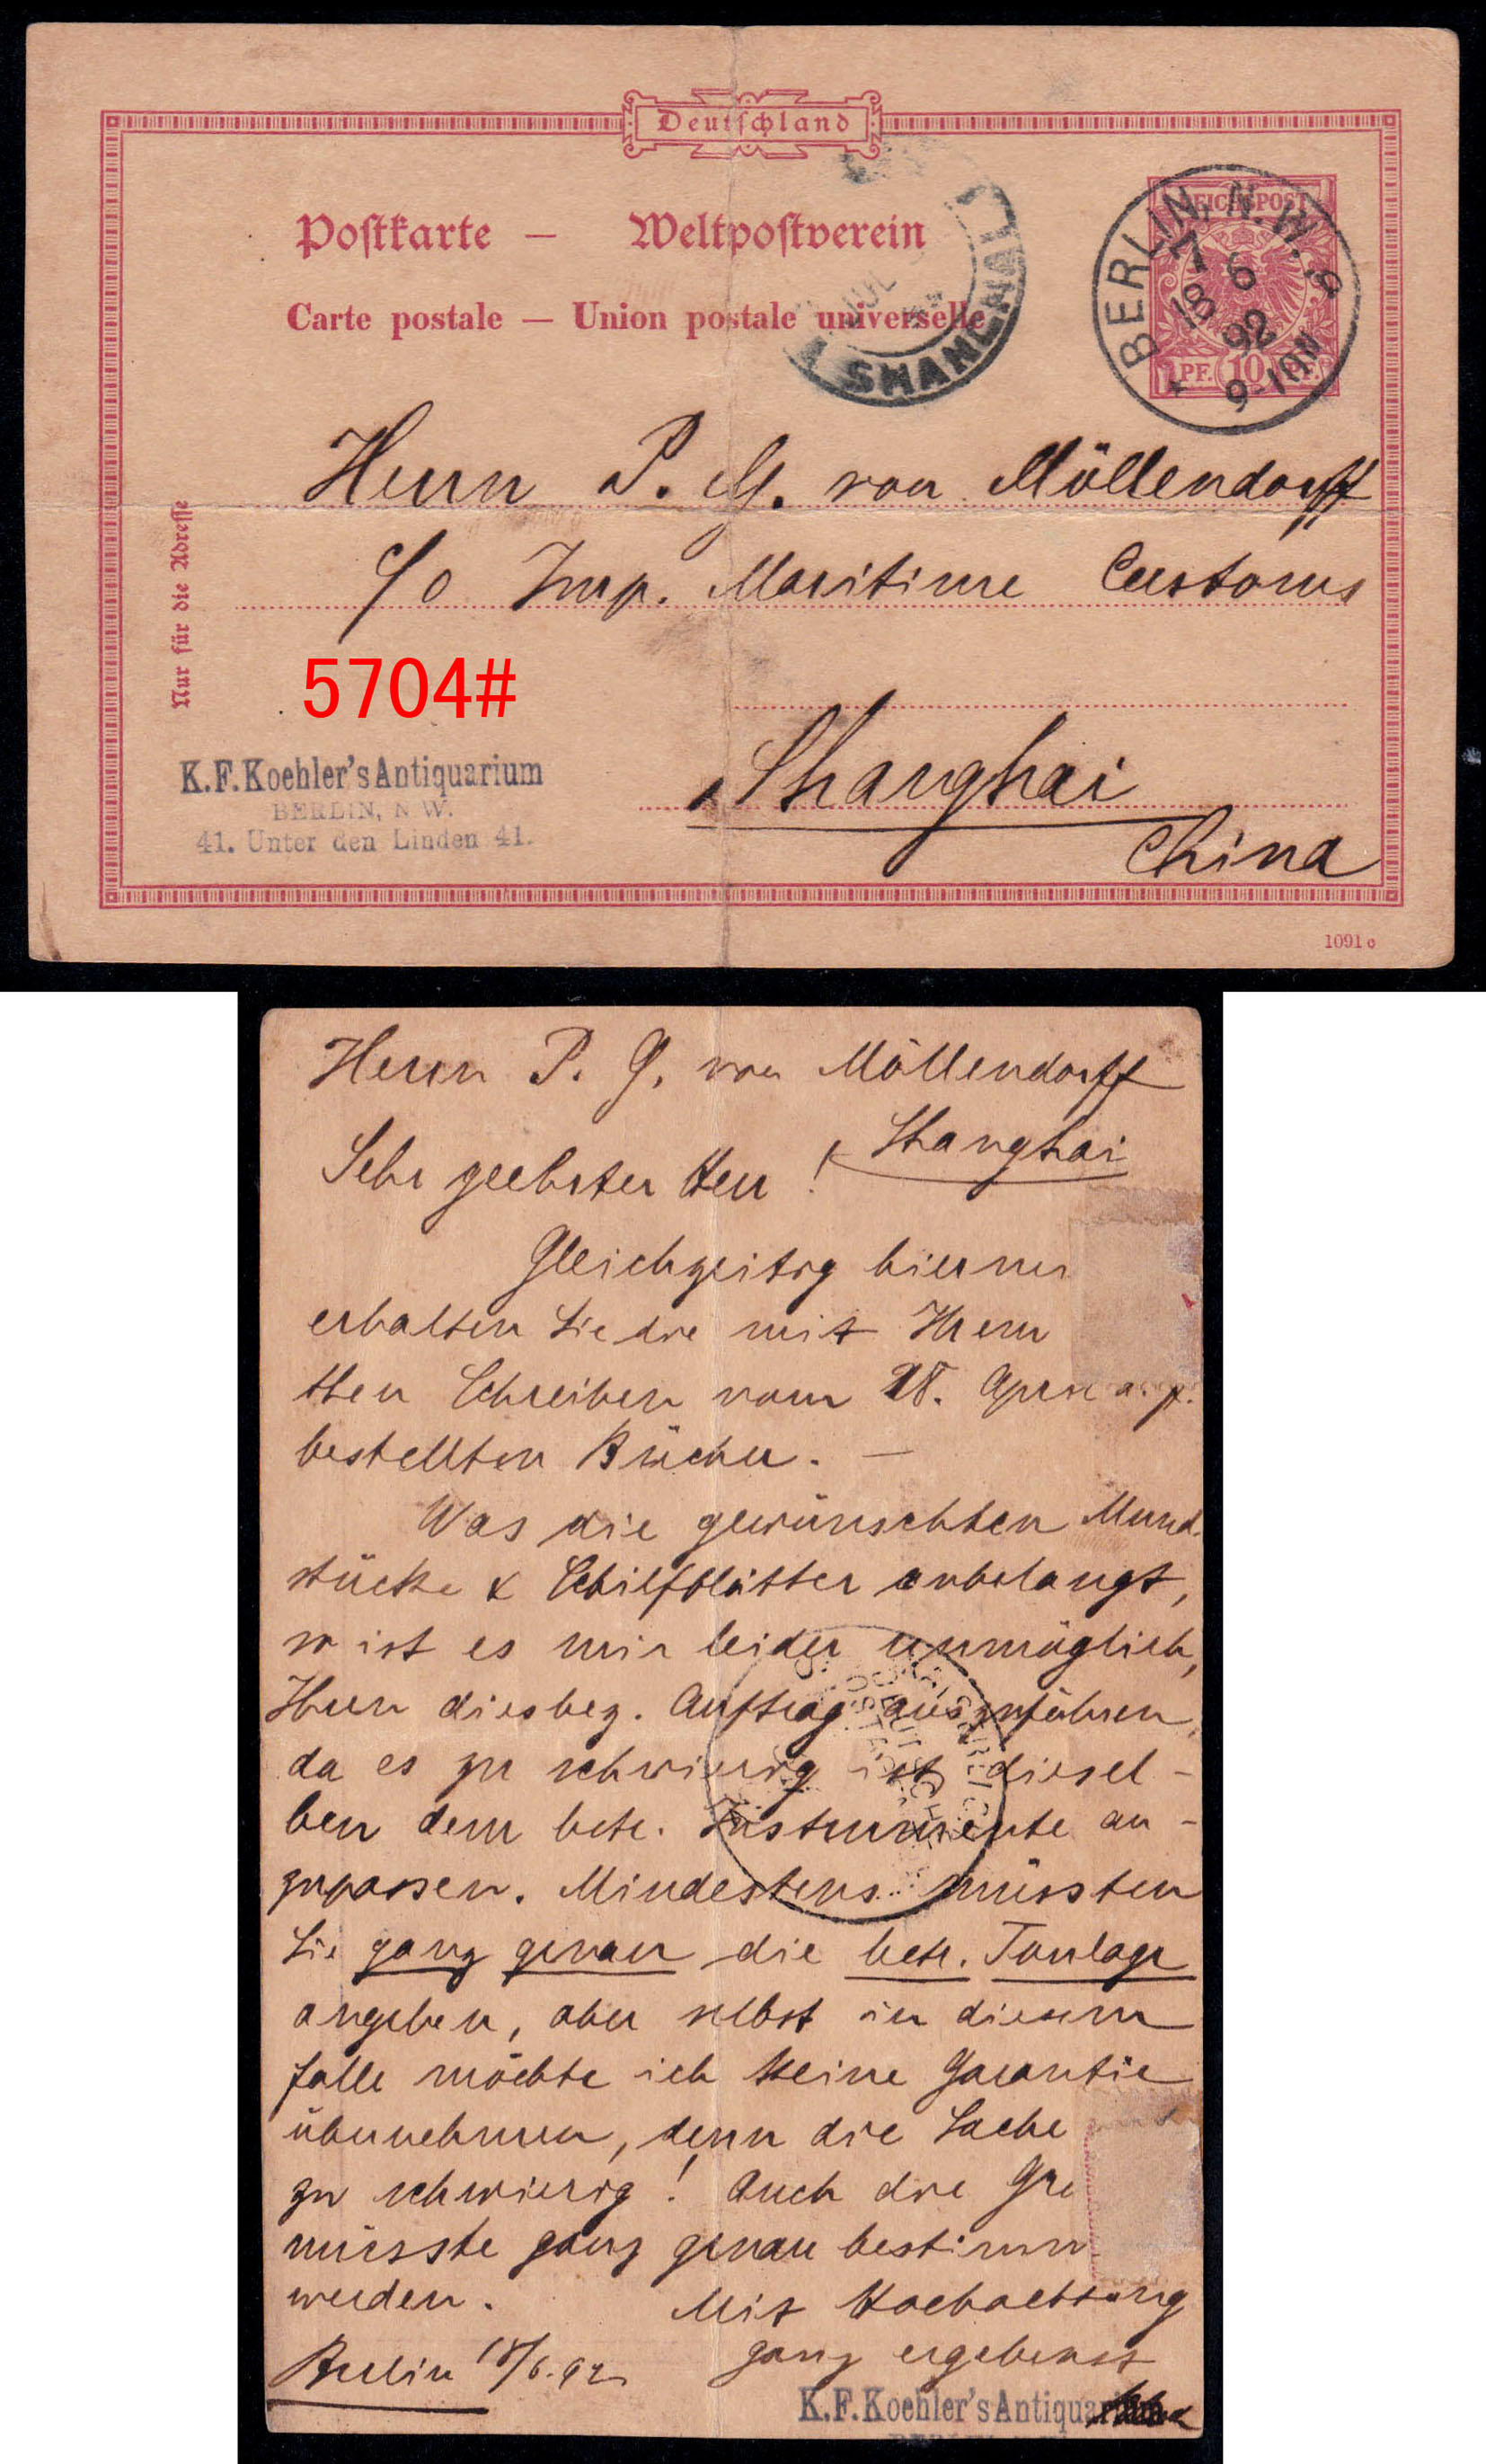 Deutschland
Postkarte — Weltpostverein
Carte postale — Union postale universelle
REICHSPOST
PF. 10 PF.
BERLIN, N.W.
7 6
18 92
9-10N
SHANGHAI
Herrn P. G. von Möllendorff
c/o Imp. Maritime Customs
Shanghai
China
Nur für die Adresse
5704#
K.F.Koehler's Antiquarium
BERLIN, N W.
41. Unter den Linden 41.
1091 c
Herrn P. G. von Möllendorff
Shanghai
Sehr geehrter Herr!
Gleichzeitig hier
erhalten Sie die mit Ihrem
Schreiben vom 28. April
bestellten Bücher. —
Was die gewünschten Mund-
stücke & Schilfblätter anbelangt,
so ist es mir leider unmöglich,
Ihren diesbez. Auftrag auszuführen,
da es zu schwierig ist diesel-
ben dem betr. Instrumente an-
zupassen. Mindestens müssten
Sie ganz genau die betr. Tonlage
angeben, aber selbst in diesem
Falle möchte ich keine Garantie
übernehmen, denn die Sache
zu schwierig! Auch die
müsste ganz genau bestimm
werden. Mit Hochachtung
ganz ergebenst
Berlin 18/6.92
K.F.Koehler's Antiquarium